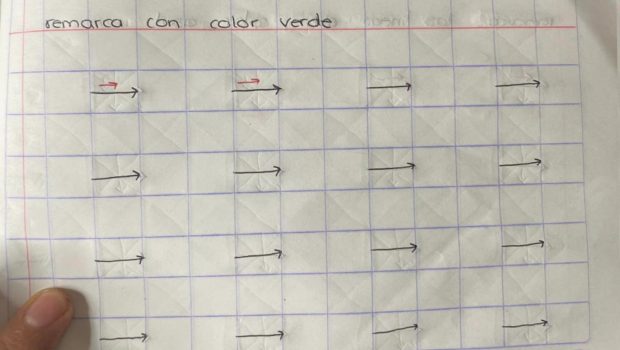 remarca con color verde